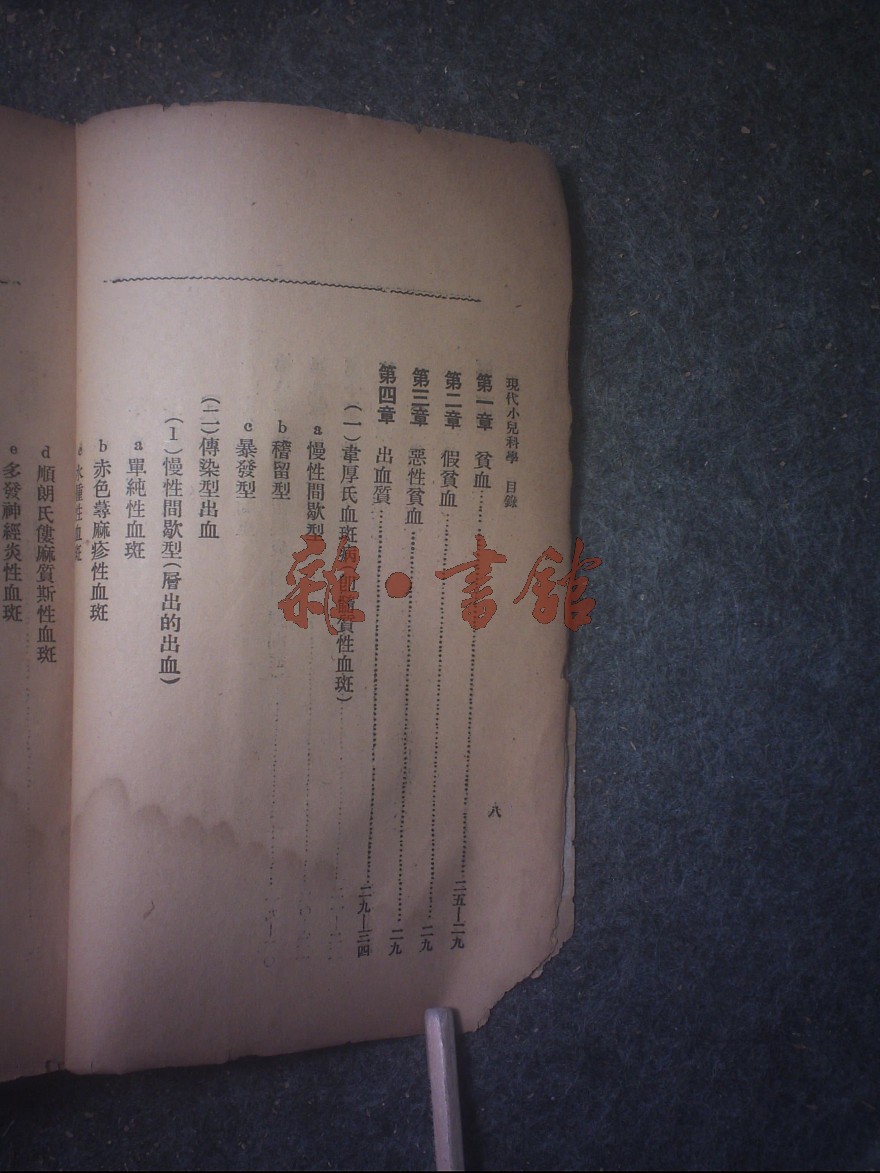 現代小兒科學 目錄
八
第一章 貧血……二五—二九
第二章 假貧血……二九
第三章 惡性貧血……二九
第四章 出血質……二九—三四
(一)韋厚氏血斑病 質性血斑)
a 慢性間歇型
b 稽留型
c 暴發型
(二)傳染型出血
(1)慢性間歇型(層出的出血)
a 單純性血斑
b 赤色蕁麻疹性血斑
水腫性血斑
d 順朗氏僂麻質斯性血斑
e 多發神經炎性血斑
雜·書館